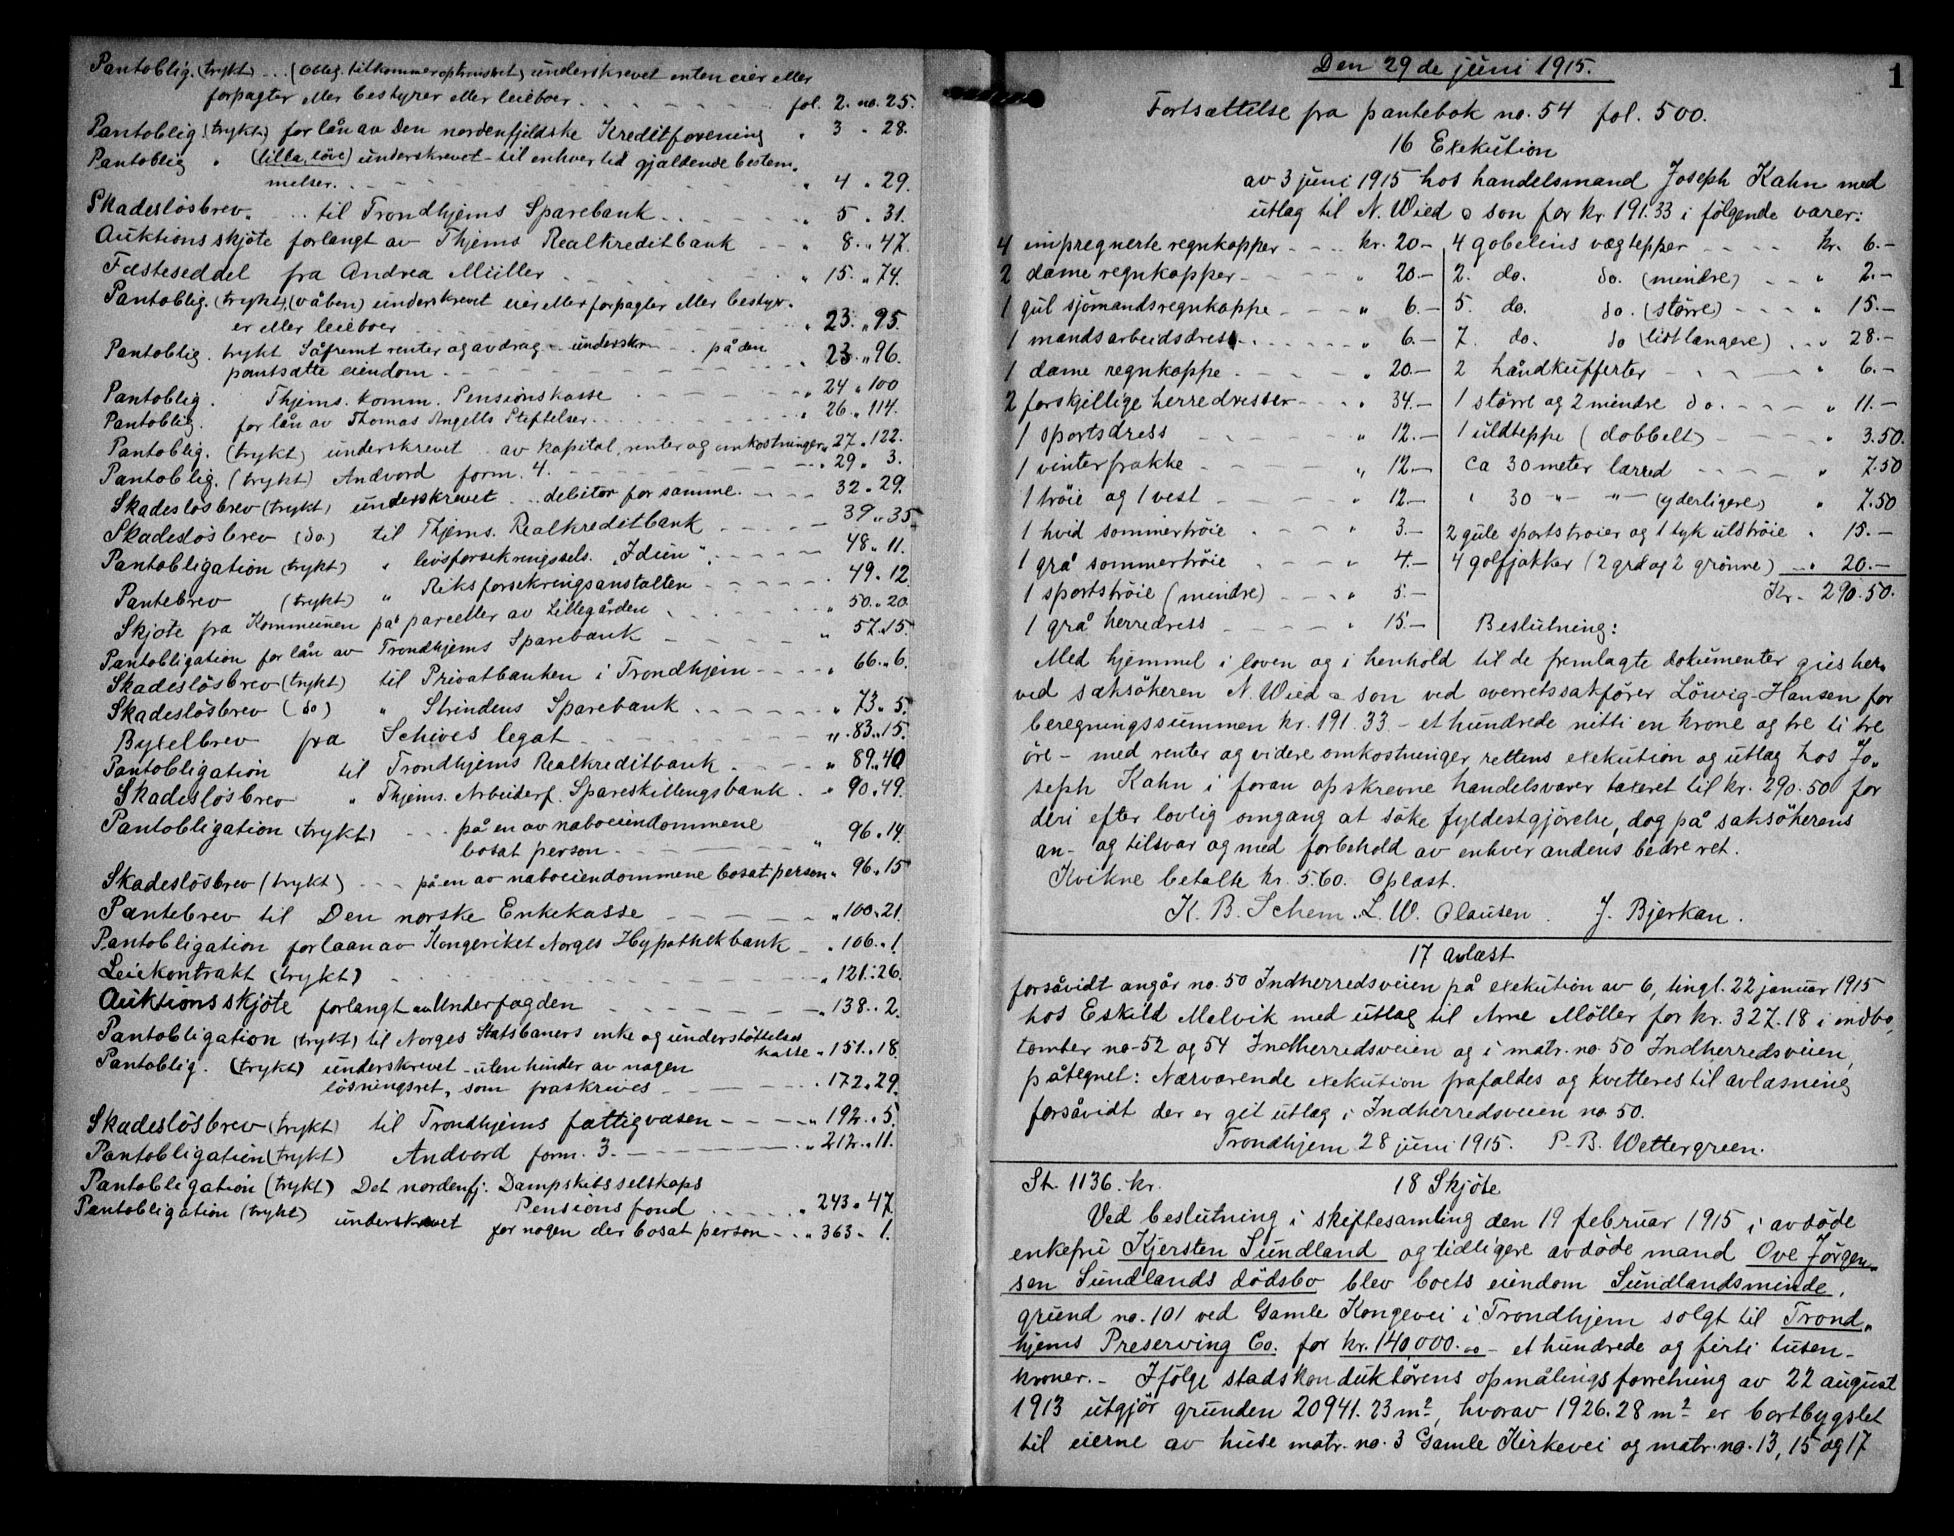 Pantoblig. (trykt) ... (Oblig. tilkommer optrinsret) underskrevet enten eier eller
forpagter eller bestyrer eller leieboer. fol. 2. no. 25.
Pantoblig (trykt) for lån av Den nordenfjeldske Kreditforening " 3 " 28.
Pantoblig " (lilla löve) underskrevet - til enhver tid gjældende bestem-
melser. " 4 " 29.
Skadeslösbrev. til Trondhjems Sparebank " 5 " 31.
Auktionsskjöte forlangt av Thjems Realkreditbank " 8. " 47.
Fæsteseddel fra Andrea Müller " 15. " 74.
Pantoblig. (trykt), (våben) underskrevet eier eller forpagter eller bestyr-
er eller leieboer " 23. " 95.
Pantoblig. trykt Såfremt renter og avdrag - underskr. på den
pantsatte eiendom " 23. " 96.
Pantoblig. Thjems. komm. Pensionskasse " 24 " 100
Pantoblig. for lån av Thomas Angells Stiftelser " 26. " 114.
Pantoblig. (trykt) underskrevet av kapital, renter og omkostninger " 27 " 122.
Pantoblig. (trykt) Andvord form. 4. " 29 " 3.
Skadeslösbrev (trykt) underskrevet debitor for samme. 32 " 29.
Skadeslösbrev (do) til Thjems. Realkreditbank 39 " 35
Pantobligation (trykt) " livsforsekringssels. "Idun" 48 " 11.
Pantebrev (trykt) " Riksforsekringsanstalten 49 " 12
Skjöte fra Kommunen på parceller av Lillegården " 50. " 20
Pantobligation for lån av Trondhjems Sparebank " 57. " 15.
Skadeslösbrev (trykt) til Privatbanken i Trondhjem " 66. " 6.
Skadeslösbrev (do) " Strindens Sparebank " 73. " 5.
Byxelbrev fra Schives legat " 83. " 15.
Pantobligation til Trondhjems Realkreditbank " 89. " 40
Skadeslösbrev " Thjems. Arbeiderf. Spareskillingsbank " 90. " 49.
Pantobligation (trykt) på en av naboeiendommene
bosat person " 96 " 14.
Skadeslösbrev (trykt) på en av naboeiendommene bosat person " 96 " 15
Pantebrev til Den norske Enkekasse " 100 " 21.
Pantobligation for laan av Kongeriket Norges Hypothekbank " 106. " 1.
Leiekontrakt (trykt) " 121. " 26.
Auktionsskjöte forlangt av Underfogden " 138. " 2.
Pantobligation (trykt) til Norges Statsbaners enke og understöttelses
kasse " 151. " 18.
Pantoblig. (trykt) underskrevet - uten hinder av nogen
lösningsret, som fraskrives " 172. " 29.
Skadeslösbrev (trykt) til Trondhjems fattigvæsen " 192. " 5.
Pantobligation (trykt) Andvord form. 3. " 212. " 11.
Pantobligation (trykt) Det nordenfj. Dampskibsselskaps
Pensionsfond " 243 " 47
Pantobligation (trykt) underskrevet for nogen der bosat person " 363 " 1.
1
Den 29de juni 1915.
Fortsættelse fra pantebok no. 54 fol. 500.
16 Exekution
av 3 juni 1915 hos handelsmand Joseph Kahn med
utlag til N. Wied & son for kr. 191.33 i følgende varer:
4 impregnerte regnkapper kr. 20 -
2 dame regnkapper " 20.-
1 gul sjömandsregnkappe " 6.-
1 mandsarbeidsdress " 6.-
1 dame regnkappe " 20.-
2 forskjellige herredresser " 34.-
1 sportsdress " 12.-
1 vinterfrakke " 12.-
1 tröie og 1 vest " 12.-
1 hvid sommertröie " 3.-
1 grå sommertröie " 4.-
1 sportströie (mindre) " 5.-
1 grå herredress " 15.-
4 gobelins vægtepper kr. 6.-
2. do. do. (mindre) " 2.-
5. do. do. (större) " 15.-
7. do. do (lidt længere) " 28.-
2 håndkufferter " 6.-
1 större og 2 mindre do. " 11.-
1 uldteppe (dobbelt) " 3.50.
Ca 30 meter lærred " 7.50
" 30 -"- -"- (yderligere) " 7.50
2 gule sportströier og 1 tyk uldtröie " 15.-
4 golfjakker (2 grå og 2 grönne) " 20.-
Kr. 290.50.
Beslutning:
Med hjemmel i loven og i henhold til de fremlagte dokumenter gies her-
ved saksökeren N. Wied & son ved overretssakförer Löwig-Hansen for
beregningssummen kr. 191.33 - et hundrede nitti en krone og tre ti tre
öre - med renter og videre omkostninger rettens exekution og utlæg hos Jo-
seph Kahn i foran opskrevne handelsvarer taxeret til kr. 290.50 for
deri efter lovlig omgang at söke fyldestgjörelse, dog på saksökerens
an- og tilsvar og med forbehold av enhver andens bedre ret.
Kvikne betalte kr. 5.60. Oplæst.
K. B. Schem. L. W. Clausen. J. Bjerkan.
17 Avlæst
forsåvidt angår no. 50 Indherredsveien på exekution av 6, tingl. 22 januar 1915
hos Eskild Malvik med utlæg til Arne Möller for kr. 327.18 i indbo,
tomter no. 52 og 54 Indherredsveien og i matr. no 50 Indherredsveien,
påtegnet: Nærværende exekution frafaldes og kvitteres til avlæsning
forsåvidt der er git utlæg i Indherredsveien no. 50.
Trondhjem 28 juni 1915. P. B. Wettergreen.
St. 1136. kr. 18 Skjöte
Ved beslutning i skiftesamling den 19 februar 1915 i avdöde
enkefru Kjersten Sundland og tidligere avdöde mand Ove Jörgen-
sen Sundlands dödsbo blev boets eiendom Sundlandsminde,
grund no. 101 ved Gamle Kongevei i Trondhjem solgt til Trond-
hjems Preserving Co. for kr. 140,000.00 - et hundrede og firti tusen -
kroner. - Ifölge stadskonduktörens opmålingsforretning av 22 august
1913 utgjör grunden 20941.23 m², hvorav 1926.28 m² er bortbygslet
til eierne av huse matr. no. 3 Gamle Kirkevei og matr. no. 13, 15 og 17